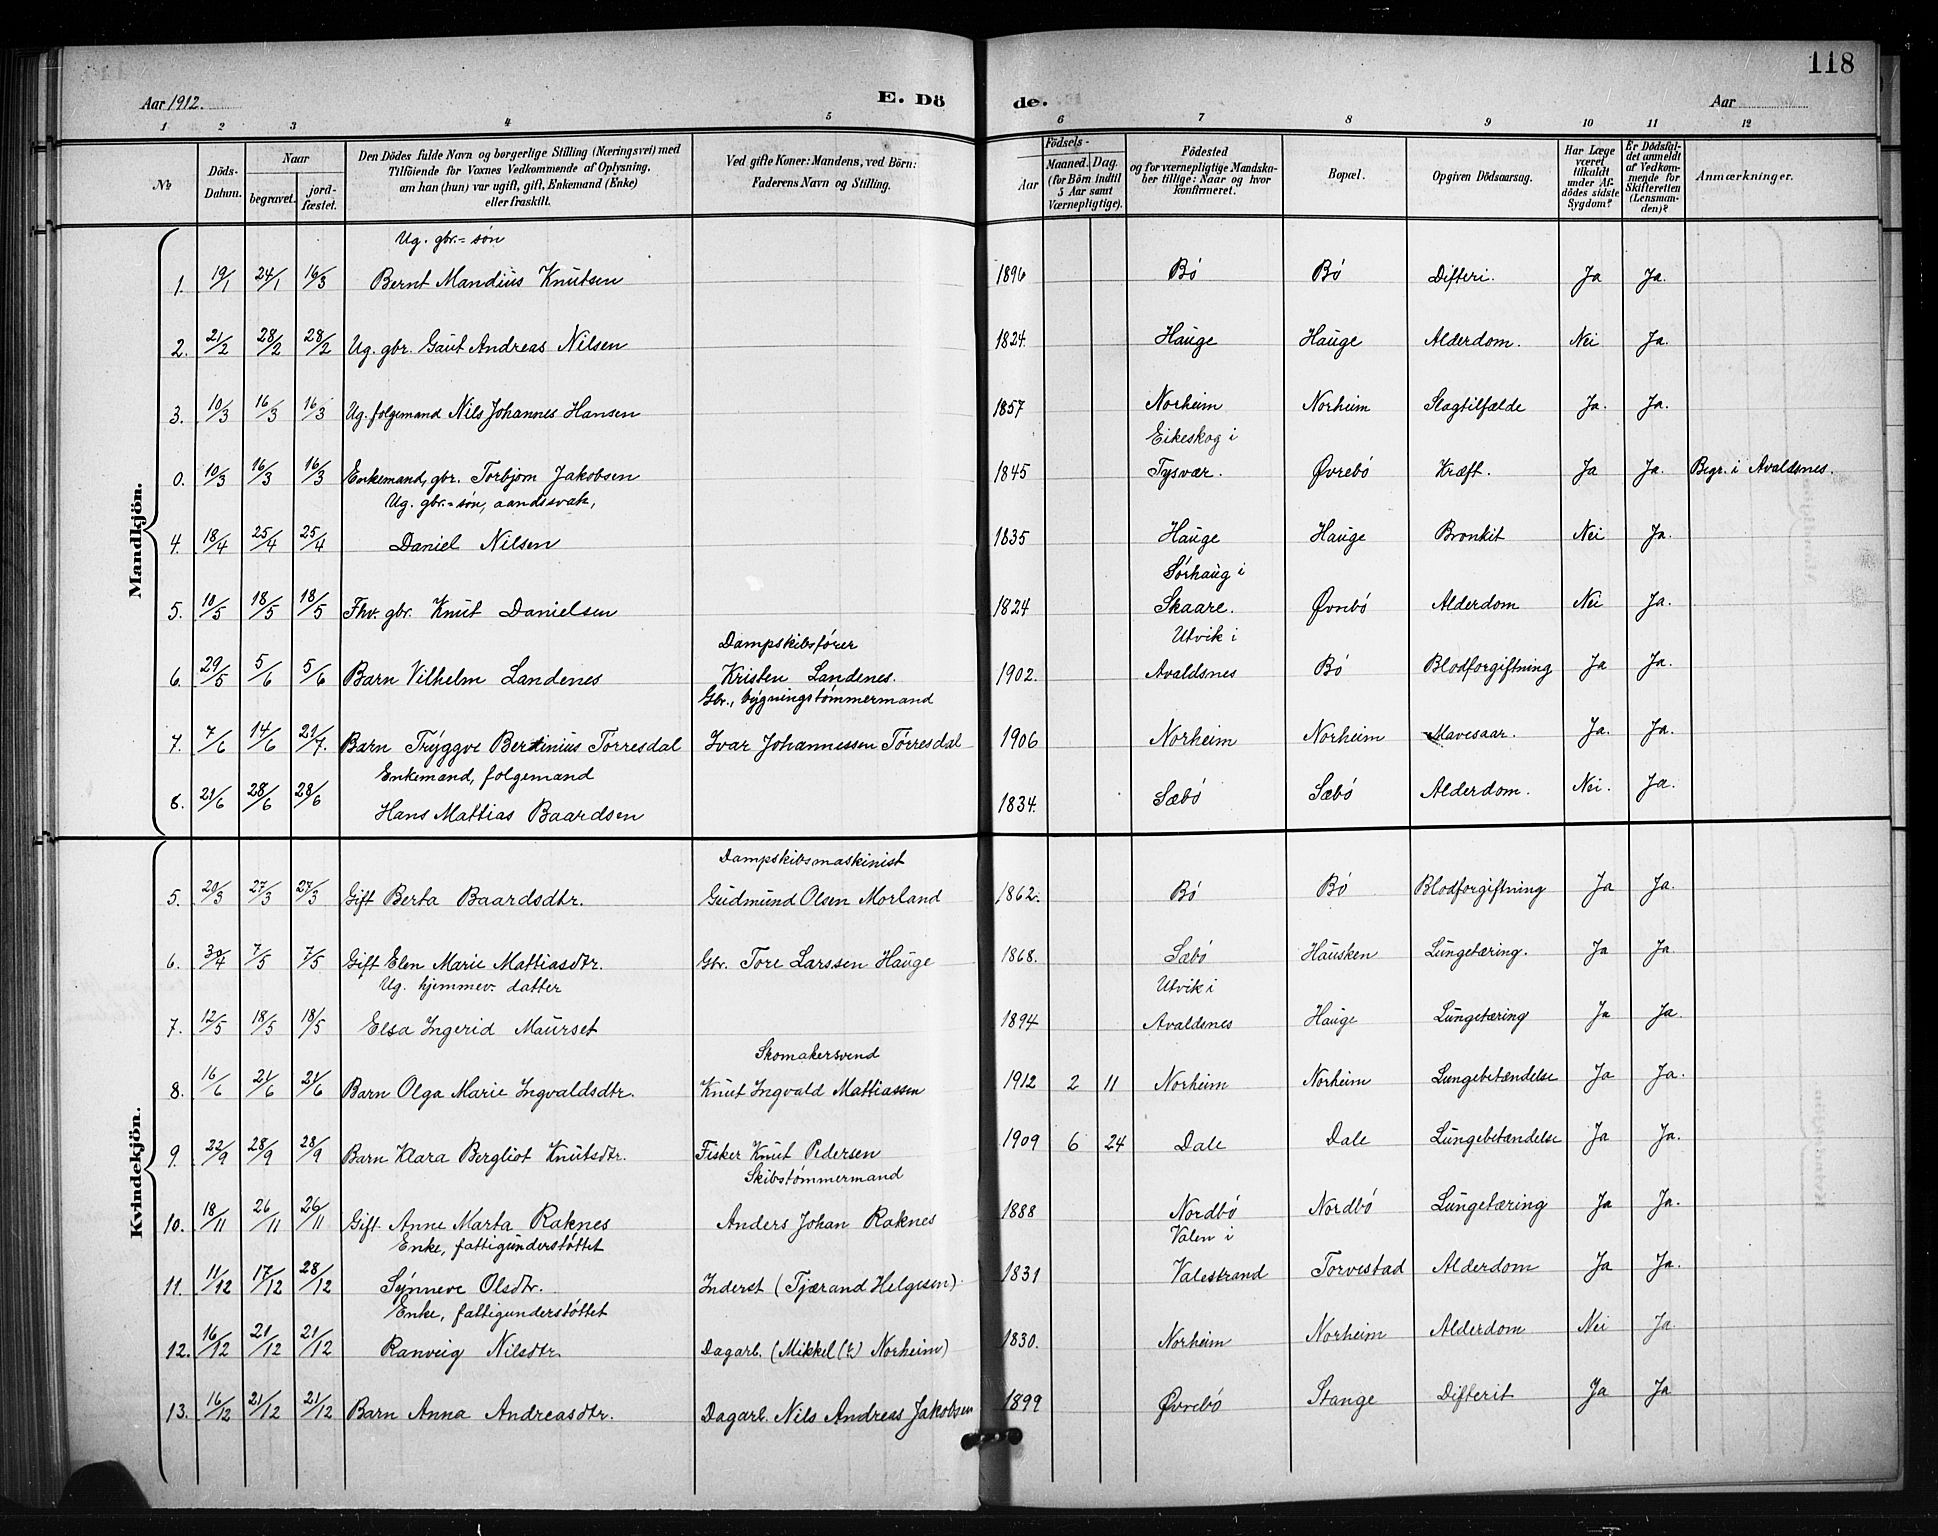 118
Aar 1912. E. Dö de. Aar
1 2 3 4 5 6 7 8 9 10 11 12
№ Döds-Datum. Naar begravet. jordfæstet. Den Dödes fulde Navn og borgerlige Stilling (Næringsvei) med Tilföiende for Voxnes Vedkommende af Oplysning, om han (hun) var ugift, gift, Enkemand (Enke) eller fraskilt. Ved gifte Koner: Mandens, ved Börn: Faderens Navn og Stilling. Aar Födsels- Maaned. Dag. (for Börn indtil 5 Aar samt Værnepligtige). Födested og for værnepligtige Mandskaber tillige: Naar og hvor konfirmeret. Bopæl. Opgiven Dödsaarsag. Har Læge været tilkaldt under Afdödes sidste Sygdom? Er Dödsfaldet anmeldt af Vedkommende for Skifteretten (Lensmanden)? Anmærkninger.
Mandkjön.
Ug. gbr.=søn
1. 19/1 24/1 16/3 Bernt Mandius Knutsen 1896 Bø Bø Difteri. Ja Ja.
2. 21/2 28/2 28/2 Ug. gbr. Gaut Andreas Nilsen 1824. Hauge Hauge Alderdom. Nei Ja.
3. 10/3 16/3 16/3 Ug. folgemand Nils Johannes Hansen 1857 Norheim Norheim Slagtilfælde Ja. Ja.
Eikeskog i
0. 10/3 16/3 16/3 Enkemand, gbr. Torbjørn Jakobsen 1845 Tysvær. Øvrebø Kræft. Ja Ja. Begr. i Avaldsnes.
Ug. gbr.=søn, aandssvak,
4. 18/4 25/4 25/4 Daniel Nilsen 1835 Hauge Hauge Bronkit Nei Ja.
Sørhaug i
5. 10/5 18/5 18/5 Fhv. gbr. Knut Danielsen 1824 Skaare. Øvrebø Alderdom Nei Ja.
Dampskibsfører Utvik i
6. 29/5 5/6 5/6 Barn Vilhelm Landenes Kristen Landenes. 1902. Avaldsnes Bø Blodforgiftning Ja Ja.
Gbr., bygningstømmermand
7. 7/6 14/6 21/7. Barn Tryggve Bertinius Tørresdal Ivar Johannessen Tørresdal 1906 Norheim Norheim Mavesaar. Ja. Ja.
Enkemand, folgemand
8. 21/6 28/6 28/6 Hans Mattias Baardsen 1834. Sæbø Sæbø Alderdom. Nei. Ja.
Kvindekjön.
Dampskibsmaskinist
5. 20/3 27/3 27/3 Gift Berta Baardsdtr. Gudmund Olsen Morland 1862. Bø Bø Blodforgiftning Ja Ja.
6. 30/4 7/5 7/5 Gift Elen Marie Mattiasdtr. Gbr. Tore Larssen Hauge 1868. Sæbø Hausken Lungetæring. Ja Ja
Ug. hjemmev. datter Utvik i
7. 12/5 18/5 18/5 Elsa Ingerid Maurset 1894 Avaldsnes Hauge Lungetæring Ja Ja.
Skomakersvend
8. 16/6 21/6 21/6 Barn Olga Marie Ingvaldsdtr. Knut Ingvald Mattiassen 1912 2 11 Norheim Norheim Lungebetændelse Ja Ja.
9. 22/9 28/9 28/9 Barn Klara Bergliot Knutsdtr. Fisker Knut Pedersen 1909 6 24 Dale Dale Lungebetændelse Ja Ja.
Skibstømmermand
10. 18/11 26/11 26/11 Gift Anne Marta Raknes Anders Johan Raknes 1888 Nordbø Nordbø Lungetæring Ja Ja.
Enke, fattigunderstøttet Valen i
11. 11/12 17/12 28/12 Synneve Olsdtr. Inderst (Tjærand Helgesen) 1831 Valestrand Torvestad Alderdom Ja Ja.
Enke, fattigunderstøttet
12. 16/12 21/12 21/12 Ranveig Nilsdtr. Dagarb. (Mikkel Norheim) 1830. Norheim Norheim Alderdom Nei Ja
13. 16/12 21/12 21/12 Barn Anna Andreasdtr. Dagarb. Nils Andreas Jakobsen 1899 Øvrebø Stange Difterit Ja Ja